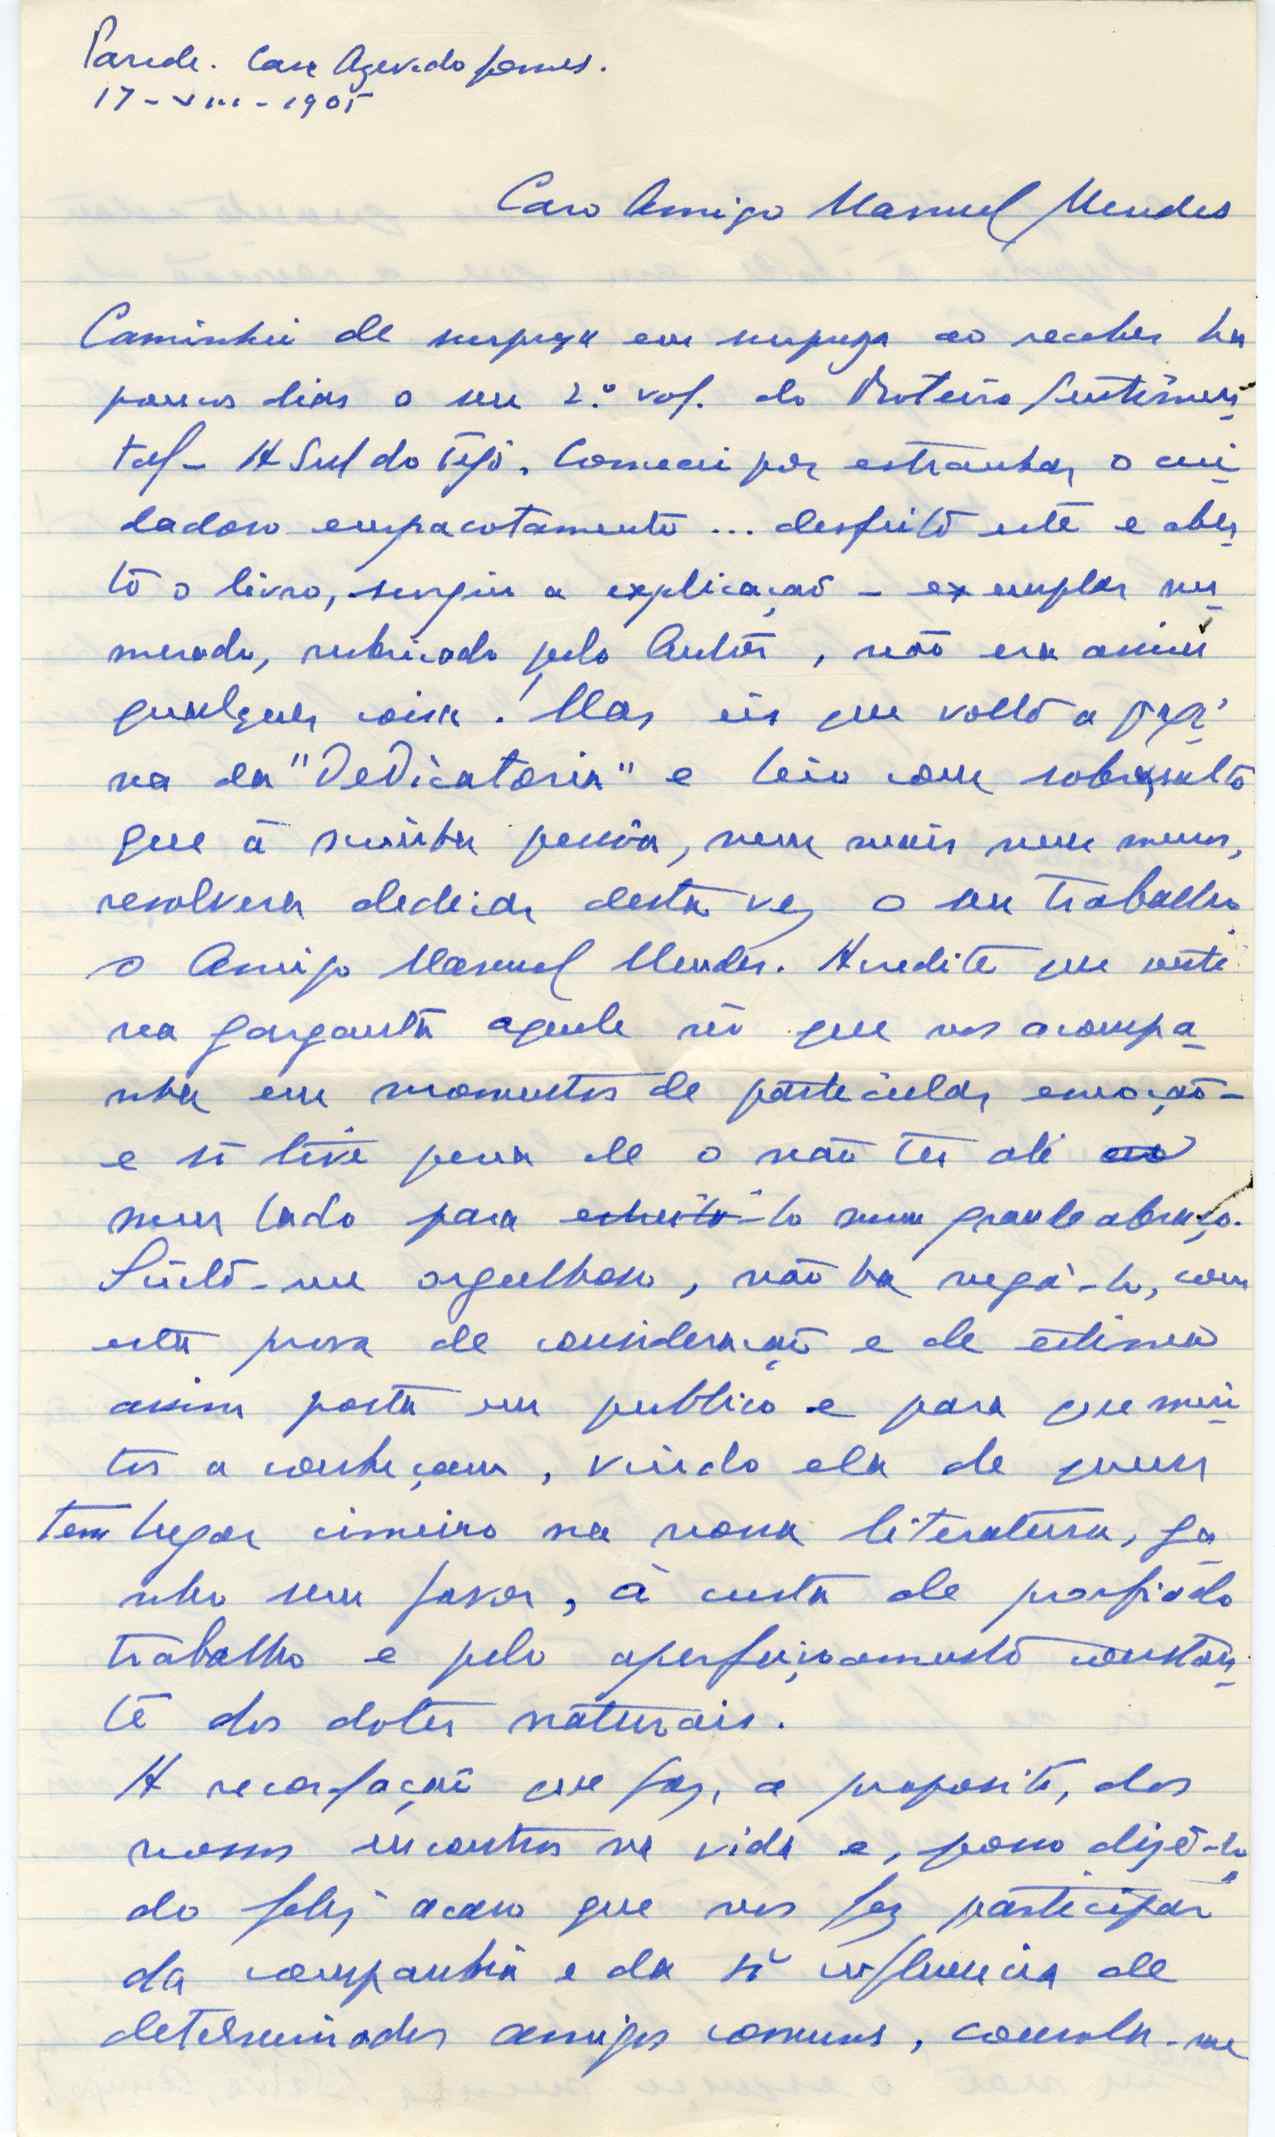 Parede. Casa Azevedo Gomes.
17-VIII-1905
Caro Amigo Manuel Mendes
Caminhei de surpresa em surpresa ao receber ha
poucos dias o seu 2.º vol. do Roteiro Sentimen-
tal - A Sul do Tejo. Comecei por estranhar o cui-
dadoso empacotamento ... desfeito este e aber-
to o livro, surgiu a explicação - exemplar nu-
merado, rubricado pelo Autor, não era assim
qualquer coisa! Mas eis que volto a pági-
na da "Dedicatoria" e leio com sobressalto
que à minha pessôa, nem mais nem menos,
resolvera dedicar desta vez o seu trabalho
o Amigo Manuel Mendes. Acredite que senti
na garganta aquele nó que nos acompa-
nha em momentos de particular emoção -
e só tive pena de o não ter ali ao
meu lado para estreitá-lo num grande abraço.
Sinto-me orgulhoso, não ha negá-lo, com
esta prova de consideração e de estima
assim posta em publico e para que mui-
tos a conheçam, vindo ela de quem
tem lugar cimeiro na nossa literatura, ga-
nho sem favor, à custa de porfiado
trabalho e pelo aperfeiçoamento constan-
te dos dotes naturais.
A recordação que faz, a proposito, dos
nossos encontros na vida e, posso dizê-lo,
do feliz acaso que nos fez participar
da companhia e da sã influencia de
determinados amigos comuns, consola-me